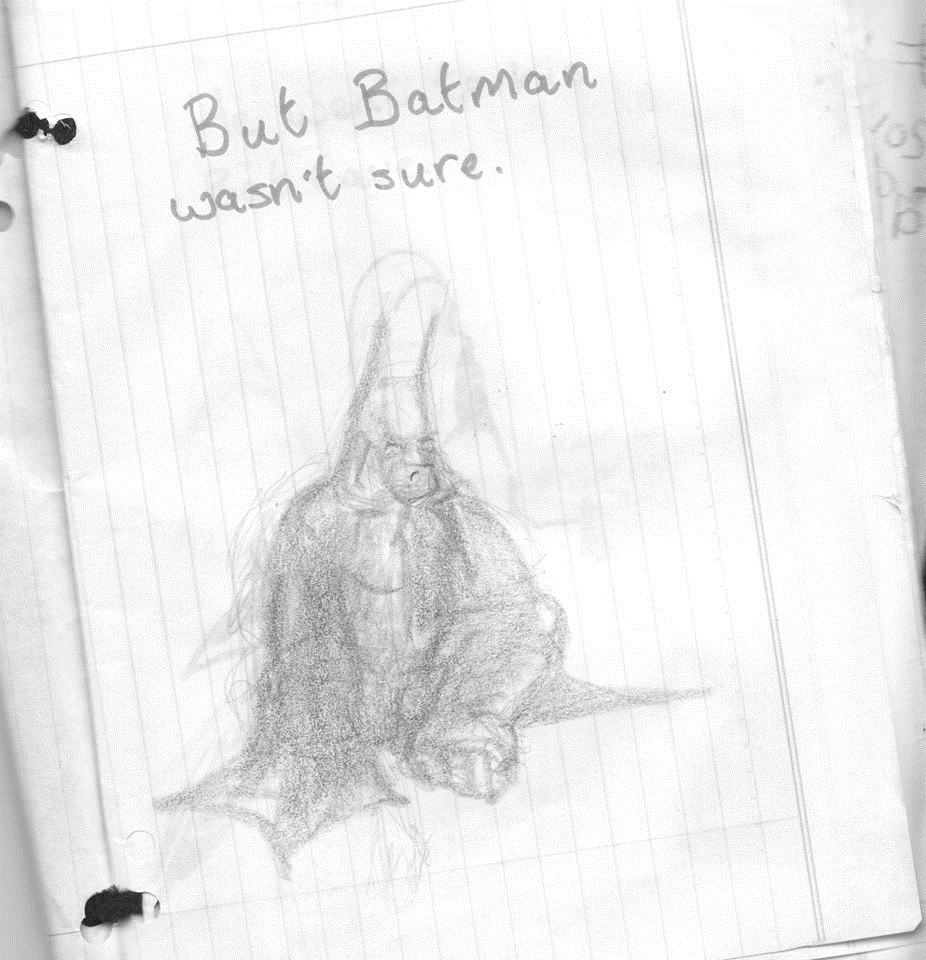 But Batman
wasn't sure.